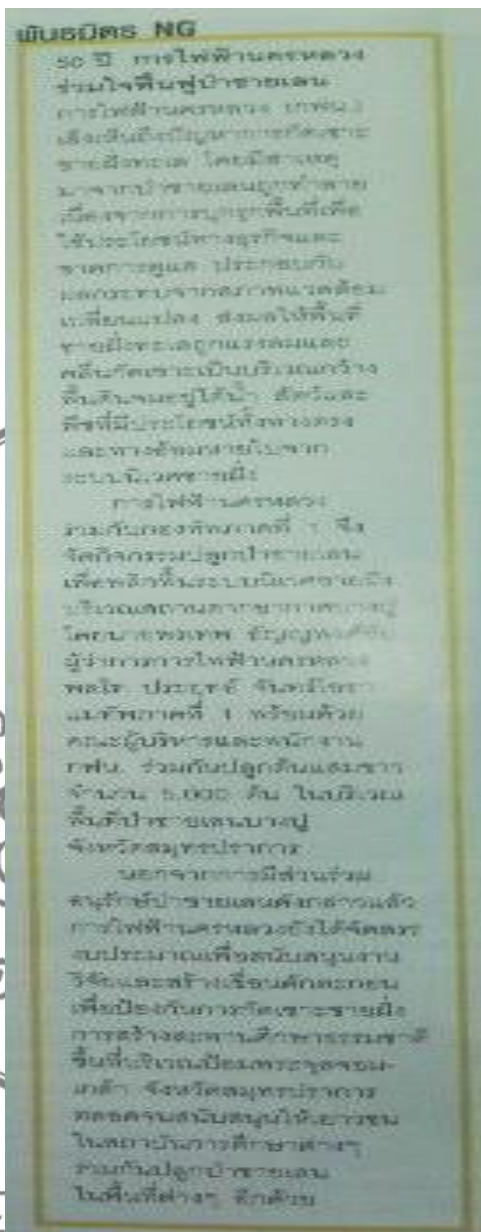 พันธมิตร NG
50 ปี การไฟฟ้านครหลวง
ร่วมใจฟื้นฟูป่าชายเลน
การไฟฟ้านครหลวง (กฟน.)
เล็งเห็นถึงปัญหาการกัดเซาะ
ชายฝั่งทะเล โดยมีสาเหตุ
มาจากป่าชายเลนถูกทำลาย
เนื่องจากการบุกรุกพื้นที่เพื่อ
ใช้ประโยชน์ทางธุรกิจและ
ขาดการดูแล ประกอบกับ
ผลกระทบจากสภาพแวดล้อม
เปลี่ยนแปลง ส่งผลให้พื้นที่
ชายฝั่งทะเลถูกแรงลมและ
คลื่นกัดเซาะเป็นบริเวณกว้าง
พื้นดินจมอยู่ใต้น้ำ สัตว์และ
พืชที่มีประโยชน์ทั้งทางตรง
และทางอ้อมหายไปจาก
ระบบนิเวศชายฝั่ง
การไฟฟ้านครหลวง
ร่วมกับกองทัพภาคที่ 1 จึง
จัดกิจกรรมปลูกป่าชายเลน
เพื่อพลิกฟื้นระบบนิเวศชายฝั่ง
บริเวณสถานตากอากาศบางปู
โดยนายพรเทพ ธัญญพงศ์ชัย
ผู้ว่าการการไฟฟ้านครหลวง
พลโท ประยุทธ์ จันทร์โอชา
แม่ทัพภาคที่ 1 พร้อมด้วย
คณะผู้บริหารและพนักงาน
กฟน. ร่วมกันปลูกต้นแสมขาว
จำนวน 5,000 ต้น ในบริเวณ
พื้นที่ป่าชายเลนบางปู
จังหวัดสมุทรปราการ
นอกจากการมีส่วนร่วม
อนุรักษ์ป่าชายเลนดังกล่าวแล้ว
การไฟฟ้านครหลวงยังได้จัดสรร
งบประมาณเพื่อสนับสนุนงาน
วิจัยและสร้างเขื่อนดักตะกอน
เพื่อป้องกันการกัดเซาะชายฝั่ง
การสร้างสะพานศึกษาธรรมชาติ
ขึ้นที่บริเวณป้อมพระจุลจอม-
เกล้า จังหวัดสมุทรปราการ
ตลอดจนสนับสนุนให้เยาวชน
ในสถาบันการศึกษาต่างๆ
ร่วมกันปลูกป่าชายเลน
ในพื้นที่ต่างๆ อีกด้วย